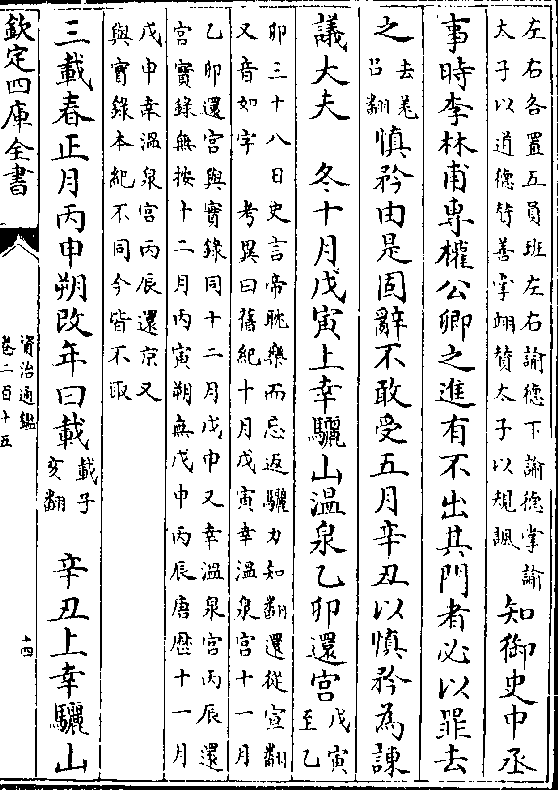 左右各置五員班左右諭德下諭德掌諭
太子以道德賛善掌翊賛太子以規諷
知御史中丞
事時李林甫專權公卿之進有不出其門者必以罪去
之
去羌
吕翻
慎矜由是固辭不敢受五月辛丑以慎矜為諫
議大夫 冬十月戊寅上幸驪山温泉乙卯還宫
戊寅
至乙
卯三十八日史言帝耽樂而忘返驪力知翻還從宣翻
又音如字 考異曰舊紀十月戊寅幸温泉宫十一月
乙卯還宫與實録同十二月戊申又幸温泉宫丙辰還
宫實録無按十二月丙寅朔無戊申丙辰唐厯十一月
戊申幸温泉宫丙辰還京又
與實録本紀不同今皆不取
三載春正月丙申朔改年曰載
載子
亥翻
辛丑上幸驪山
欽定四庫全書
資治通鑑
卷二百十五
十四